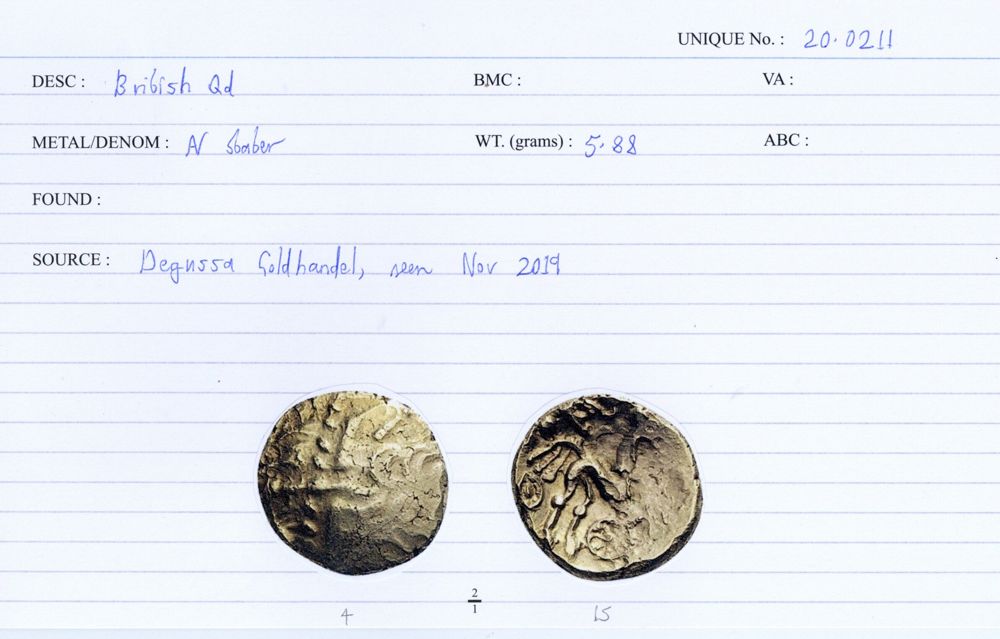 UNIQUE No. : 20.0211
DESC : British Qd BMC : VA :
METAL/DENOM : AV stater WT. (grams) : 5.88 ABC :
FOUND :
SOURCE : Degussa Goldhandel, seen Nov 2019
2
1
4 15